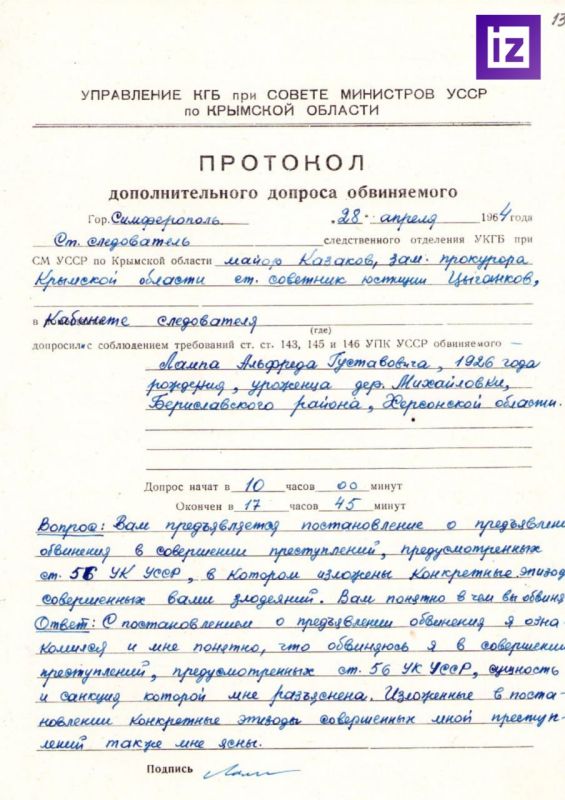 13
iz
УПРАВЛЕНИЕ КГБ при СОВЕТЕ МИНИСТРОВ УССР
по КРЫМСКОЙ ОБЛАСТИ
ПРОТОКОЛ
дополнительного допроса обвиняемого
Гор. Симферополь „28" апреля 1964 года
Ст. следователь следственного отделения УКГБ при
СМ УССР по Крымской области майор Казаков, зам. прокурора
Крымской области ст. советник юстиции Цыганков,
в кабинете следователя
(где)
допросили с соблюдением требований ст. ст. 143, 145 и 146 УПК УССР обвиняемого —
Лампа Альфреда Густавовича, 1926 года
рождения, уроженца дер. Михайловки,
Бериславского района, Херсонской области.
Допрос начат в 10 часов 00 минут
Окончен в 17 часов 45 минут
Вопрос: Вам предъявляется постановление о предъявлени
обвинения в совершении преступлений, предусмотренных
ст. 56 УК УССР, в котором изложены конкретные эпизод
совершенных вами злодеяний. Вам понятно в чем вы обвиня
Ответ: С постановлением о предъявлении обвинения я озна-
комился и мне понятно, что обвиняюсь я в совершении
преступлений, предусмотренных ст. 56 УК УССР, сущность
и санкция которой мне разъяснена. Изложенные в поста-
новлении конкретные эпизоды совершенных мной преступ-
лений также мне ясны.
Подпись